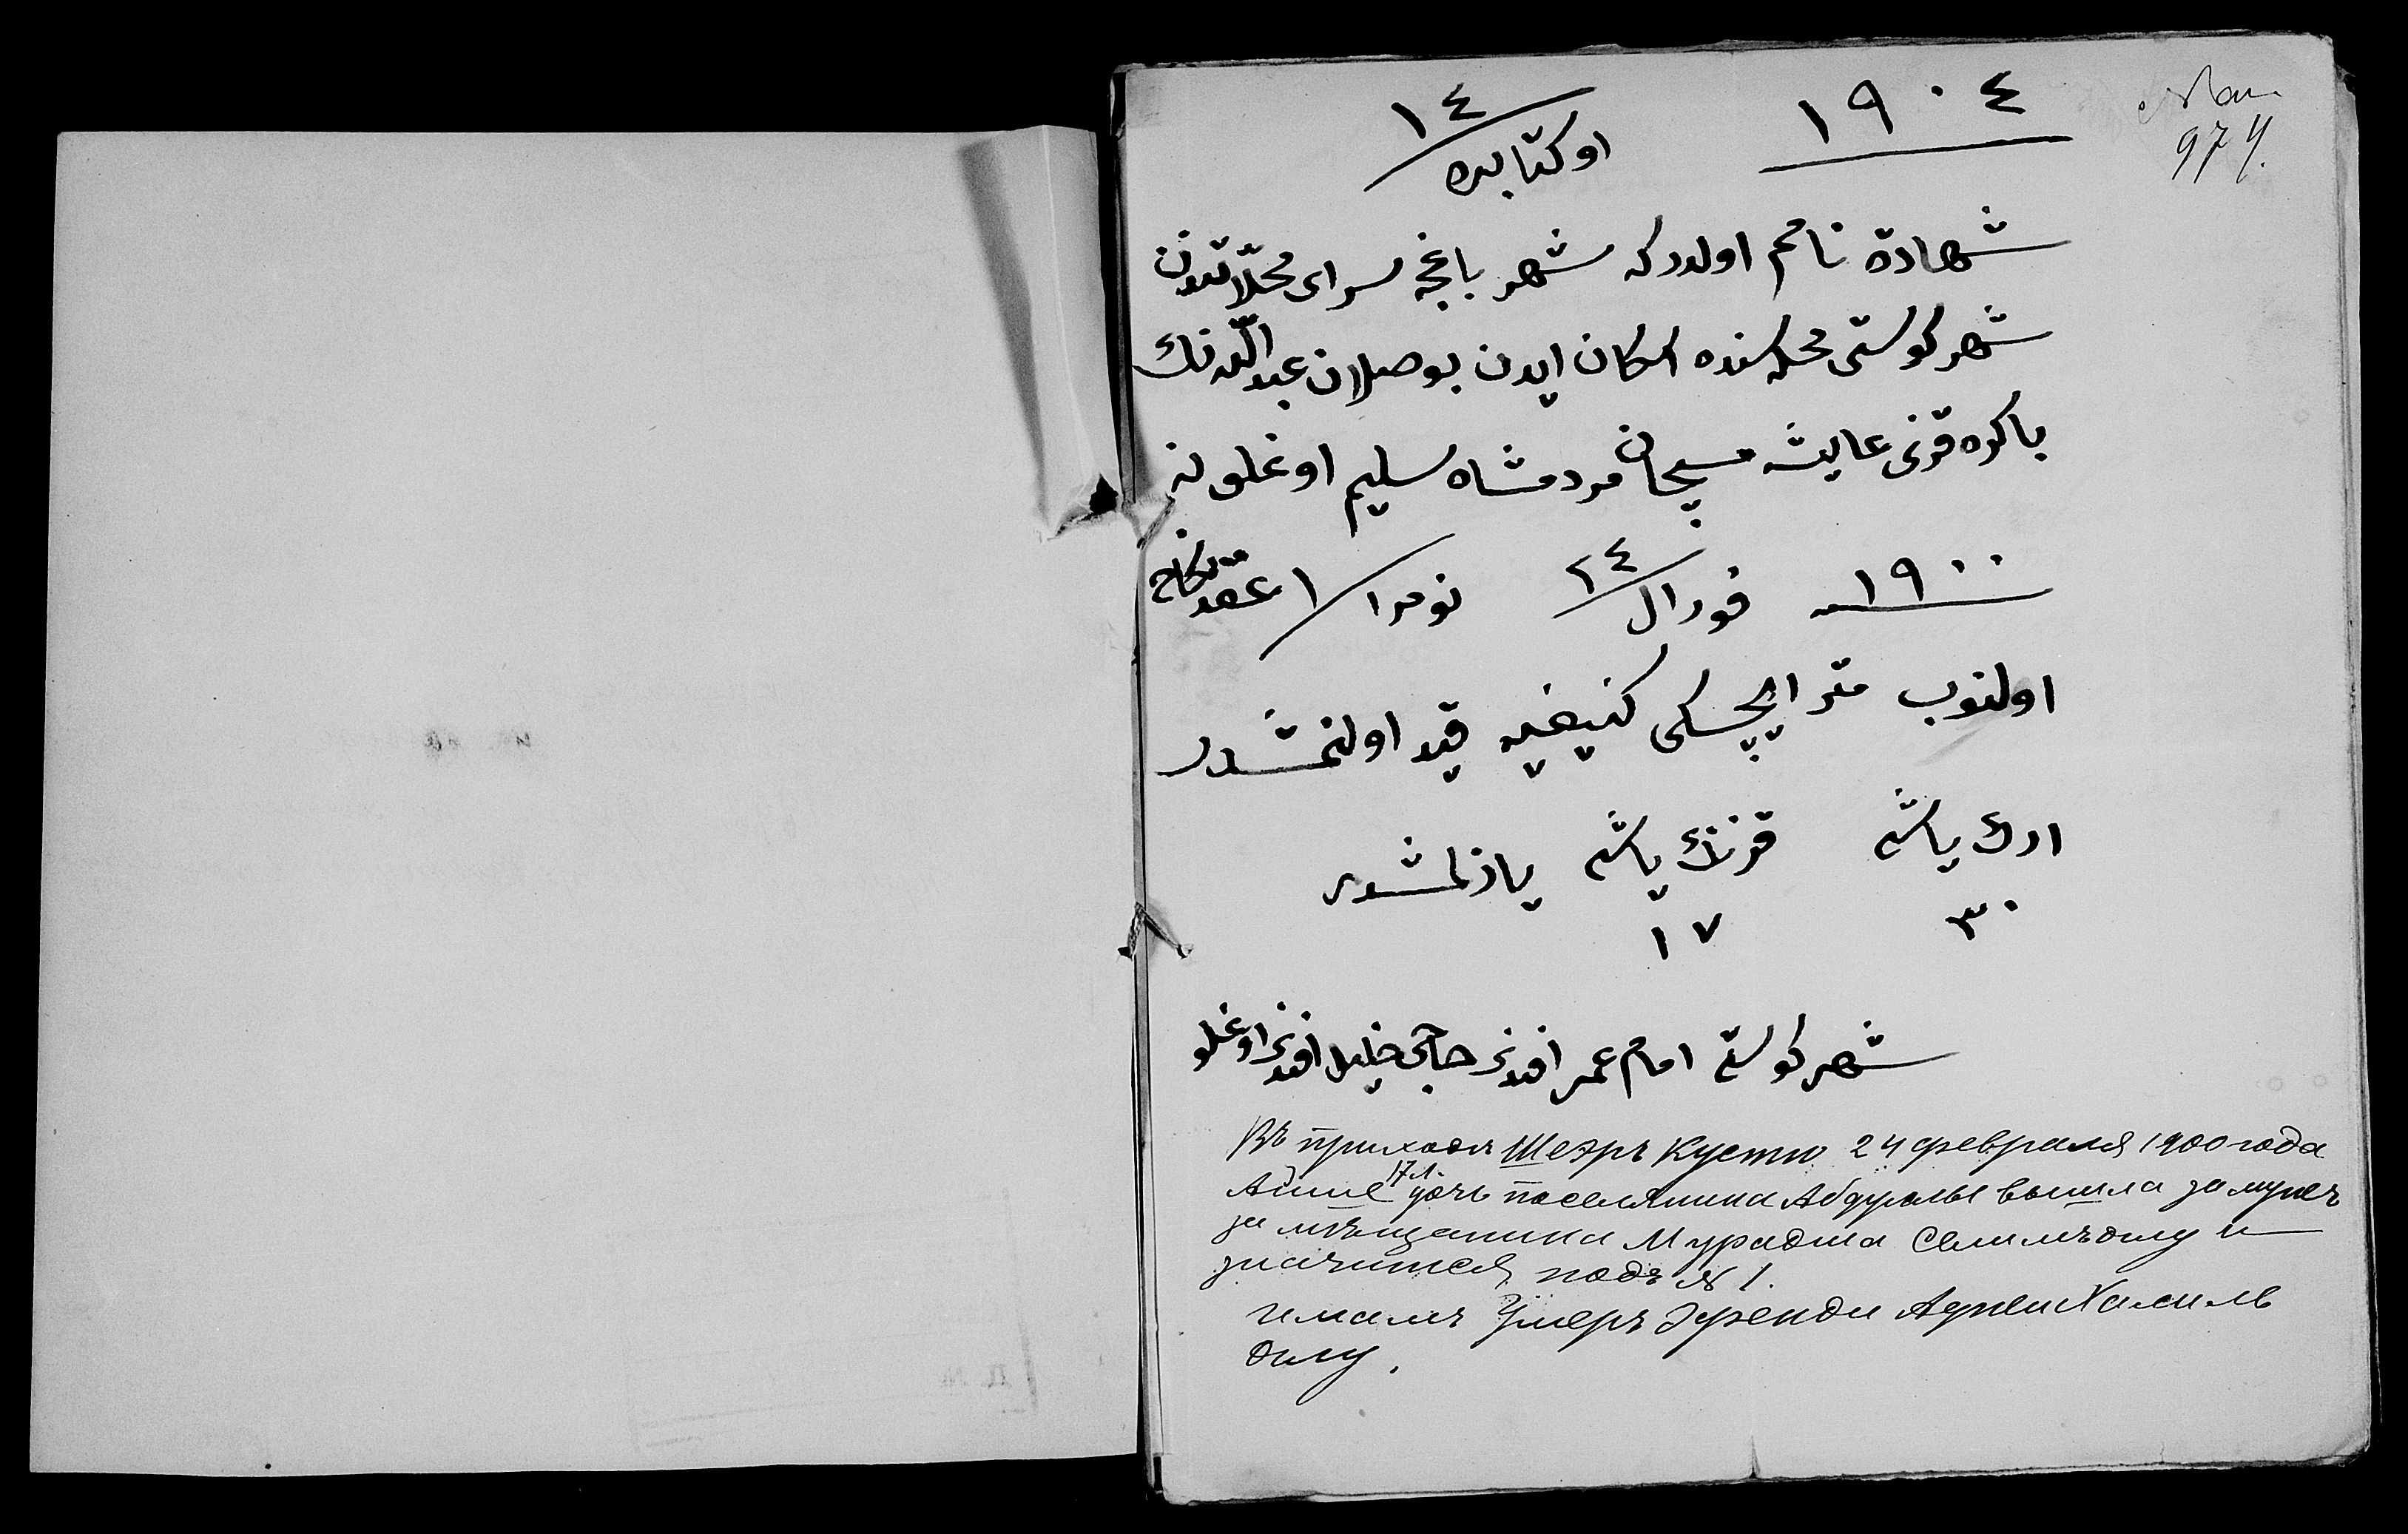 974
١٩٠٤
١٤ اوكتابره
شهادة نامم اولدركه شهر باغچه سراى محلّاتندن
شهر كوستى محله سنده اسكان ايدن بوصلان عبداللّه نك
باكره قزى عايشه مسيحان مردمشاه سليم اوغلونه
١٩٠٠ فورال ٢٤ نومرا ١ عقد نكاح
اولنوب مترايچسكى كنيغيه قيد اولنمشدر
ارك ياشى قزنك ياشى يازلمشدر
٣٠ ١٧
شهر كوستى امام عمر افندى حاجى خليل افندى اوغلو
Въ приходѣ Шеэръ Кусто 24 февраля 1900 года
Айше 17 л. дочь поселянина Абдуллы вышла замужъ
за мѣщанина Мурадша Селимъ оглу и
значится подъ № 1.
имамъ Умеръ Эфенди Аджи Халиль
оглу.